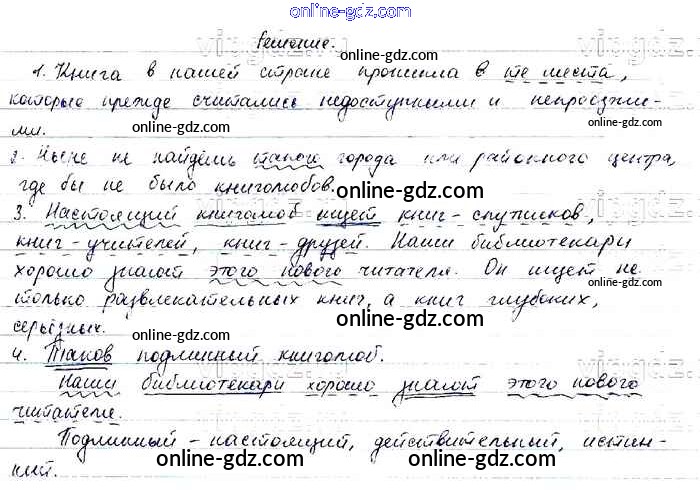 online-gdz.com
Решение.
online-gdz.com
1. Книга в нашей стране проникла в те места,
online-gdz.com
которые прежде считались недоступными и непроезжи-
ми.
online-gdz.com
2. Ныне не найдёшь такого города или районного центра,
где бы не было книголюбов.
online-gdz.com
3. Настоящий книголюб ищет книг-спутников,
книг-учителей, книг-друзей. Наши библиотекари
online-gdz.com
хорошо знают этого нового читателя. Он ищет не
только развлекательных книг, а книг глубоких,
серьёзных.
online-gdz.com
online-gdz.com
4. Таков подлинный книголюб.
online-gdz.com
Наши библиотекари хорошо знают этого нового
читателя.
online-gdz.com
Подлинный - настоящий, действительный, истин-
ный.
online-gdz.com
online-gdz.com